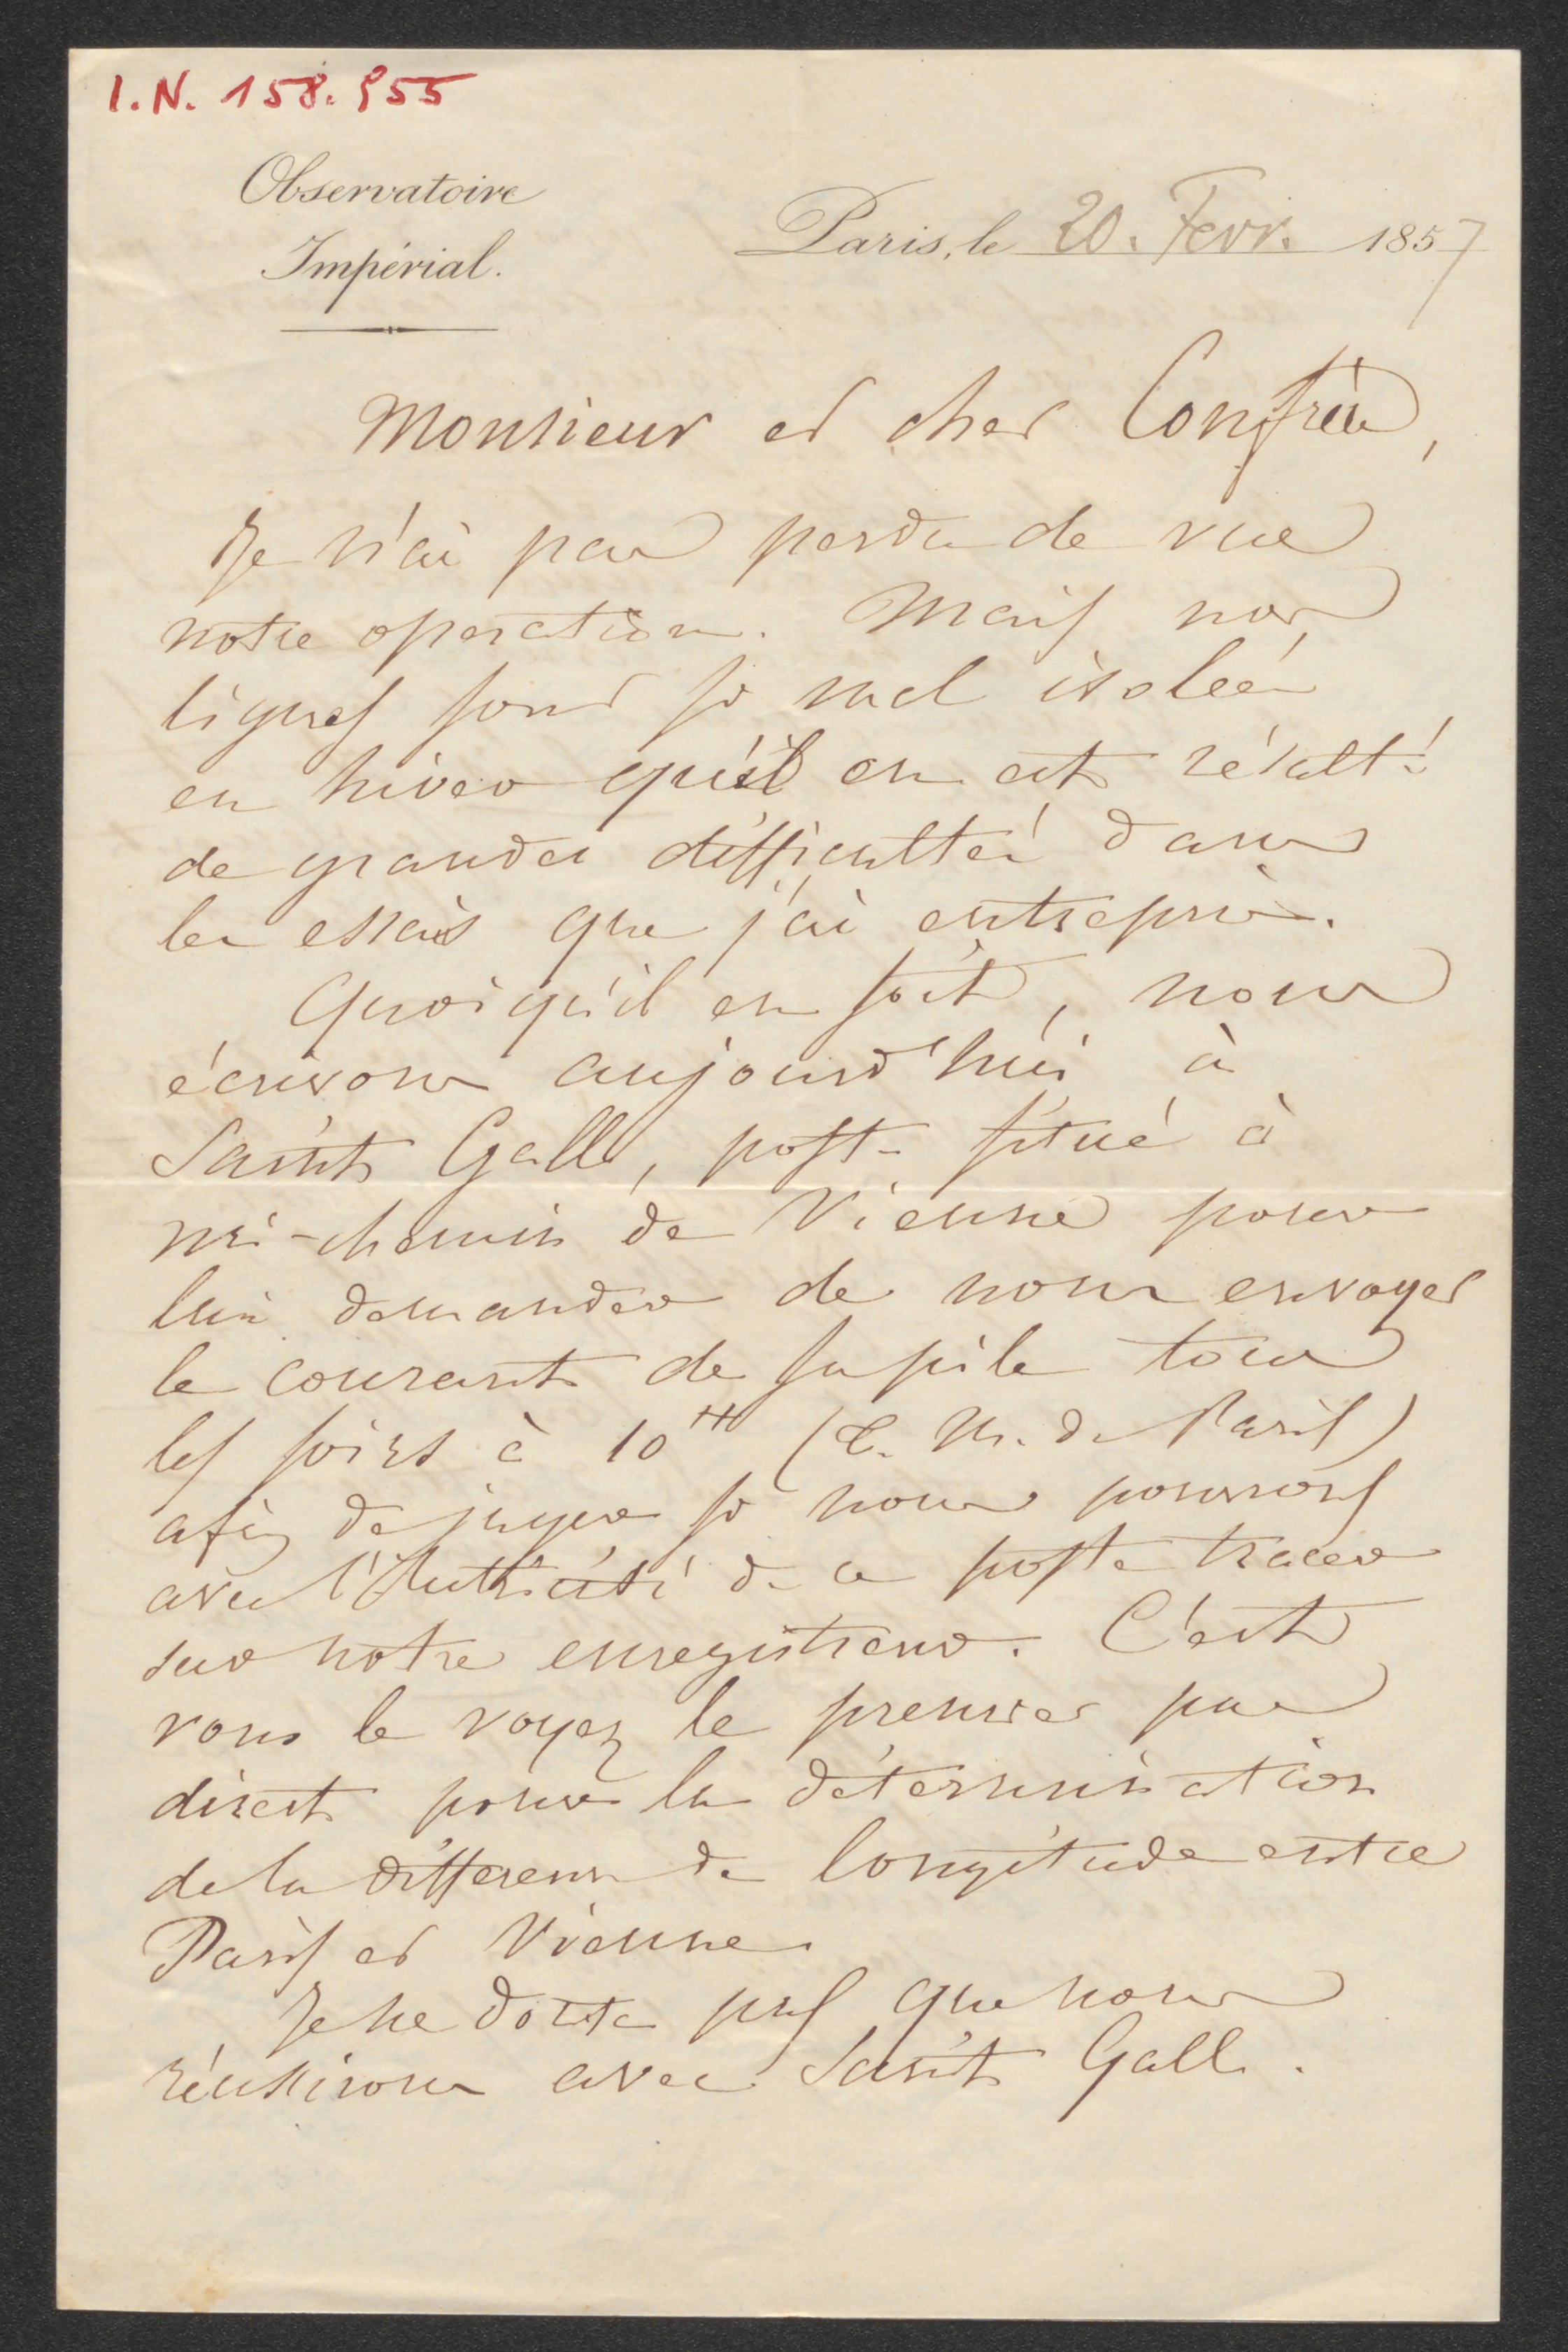 I.N. 158.955
Observatoire
Impérial.
Paris, le 20. Fevr. 1857
Monsieur et cher Confrère,
Je n'ai pas perdu de vue
notre operation. Mais nos
lignes sont si mal isolées
en hiver qu'il en est résulté
de grandes difficultés dans
les essais que j'ai entrepris.
Quoiqu'il en soit, nous
écrivons aujourd'hui à
Saint Gall, poste situé à
mi-chemin de Vienne pour
lui demander de nous envoyer
le courant de sa pile tous
les soirs à 10H (t. m. de Paris)
afin de juger si nous pourrons
avec l'électricité de ce poste tracer
sur notre enregistreur. C'est
vous le voyez le premier pas
direct pour la détermination
de la différence de longitude entre
Paris et Vienne.
Je ne doute pas que nous
réussirons avec Saint Gall.